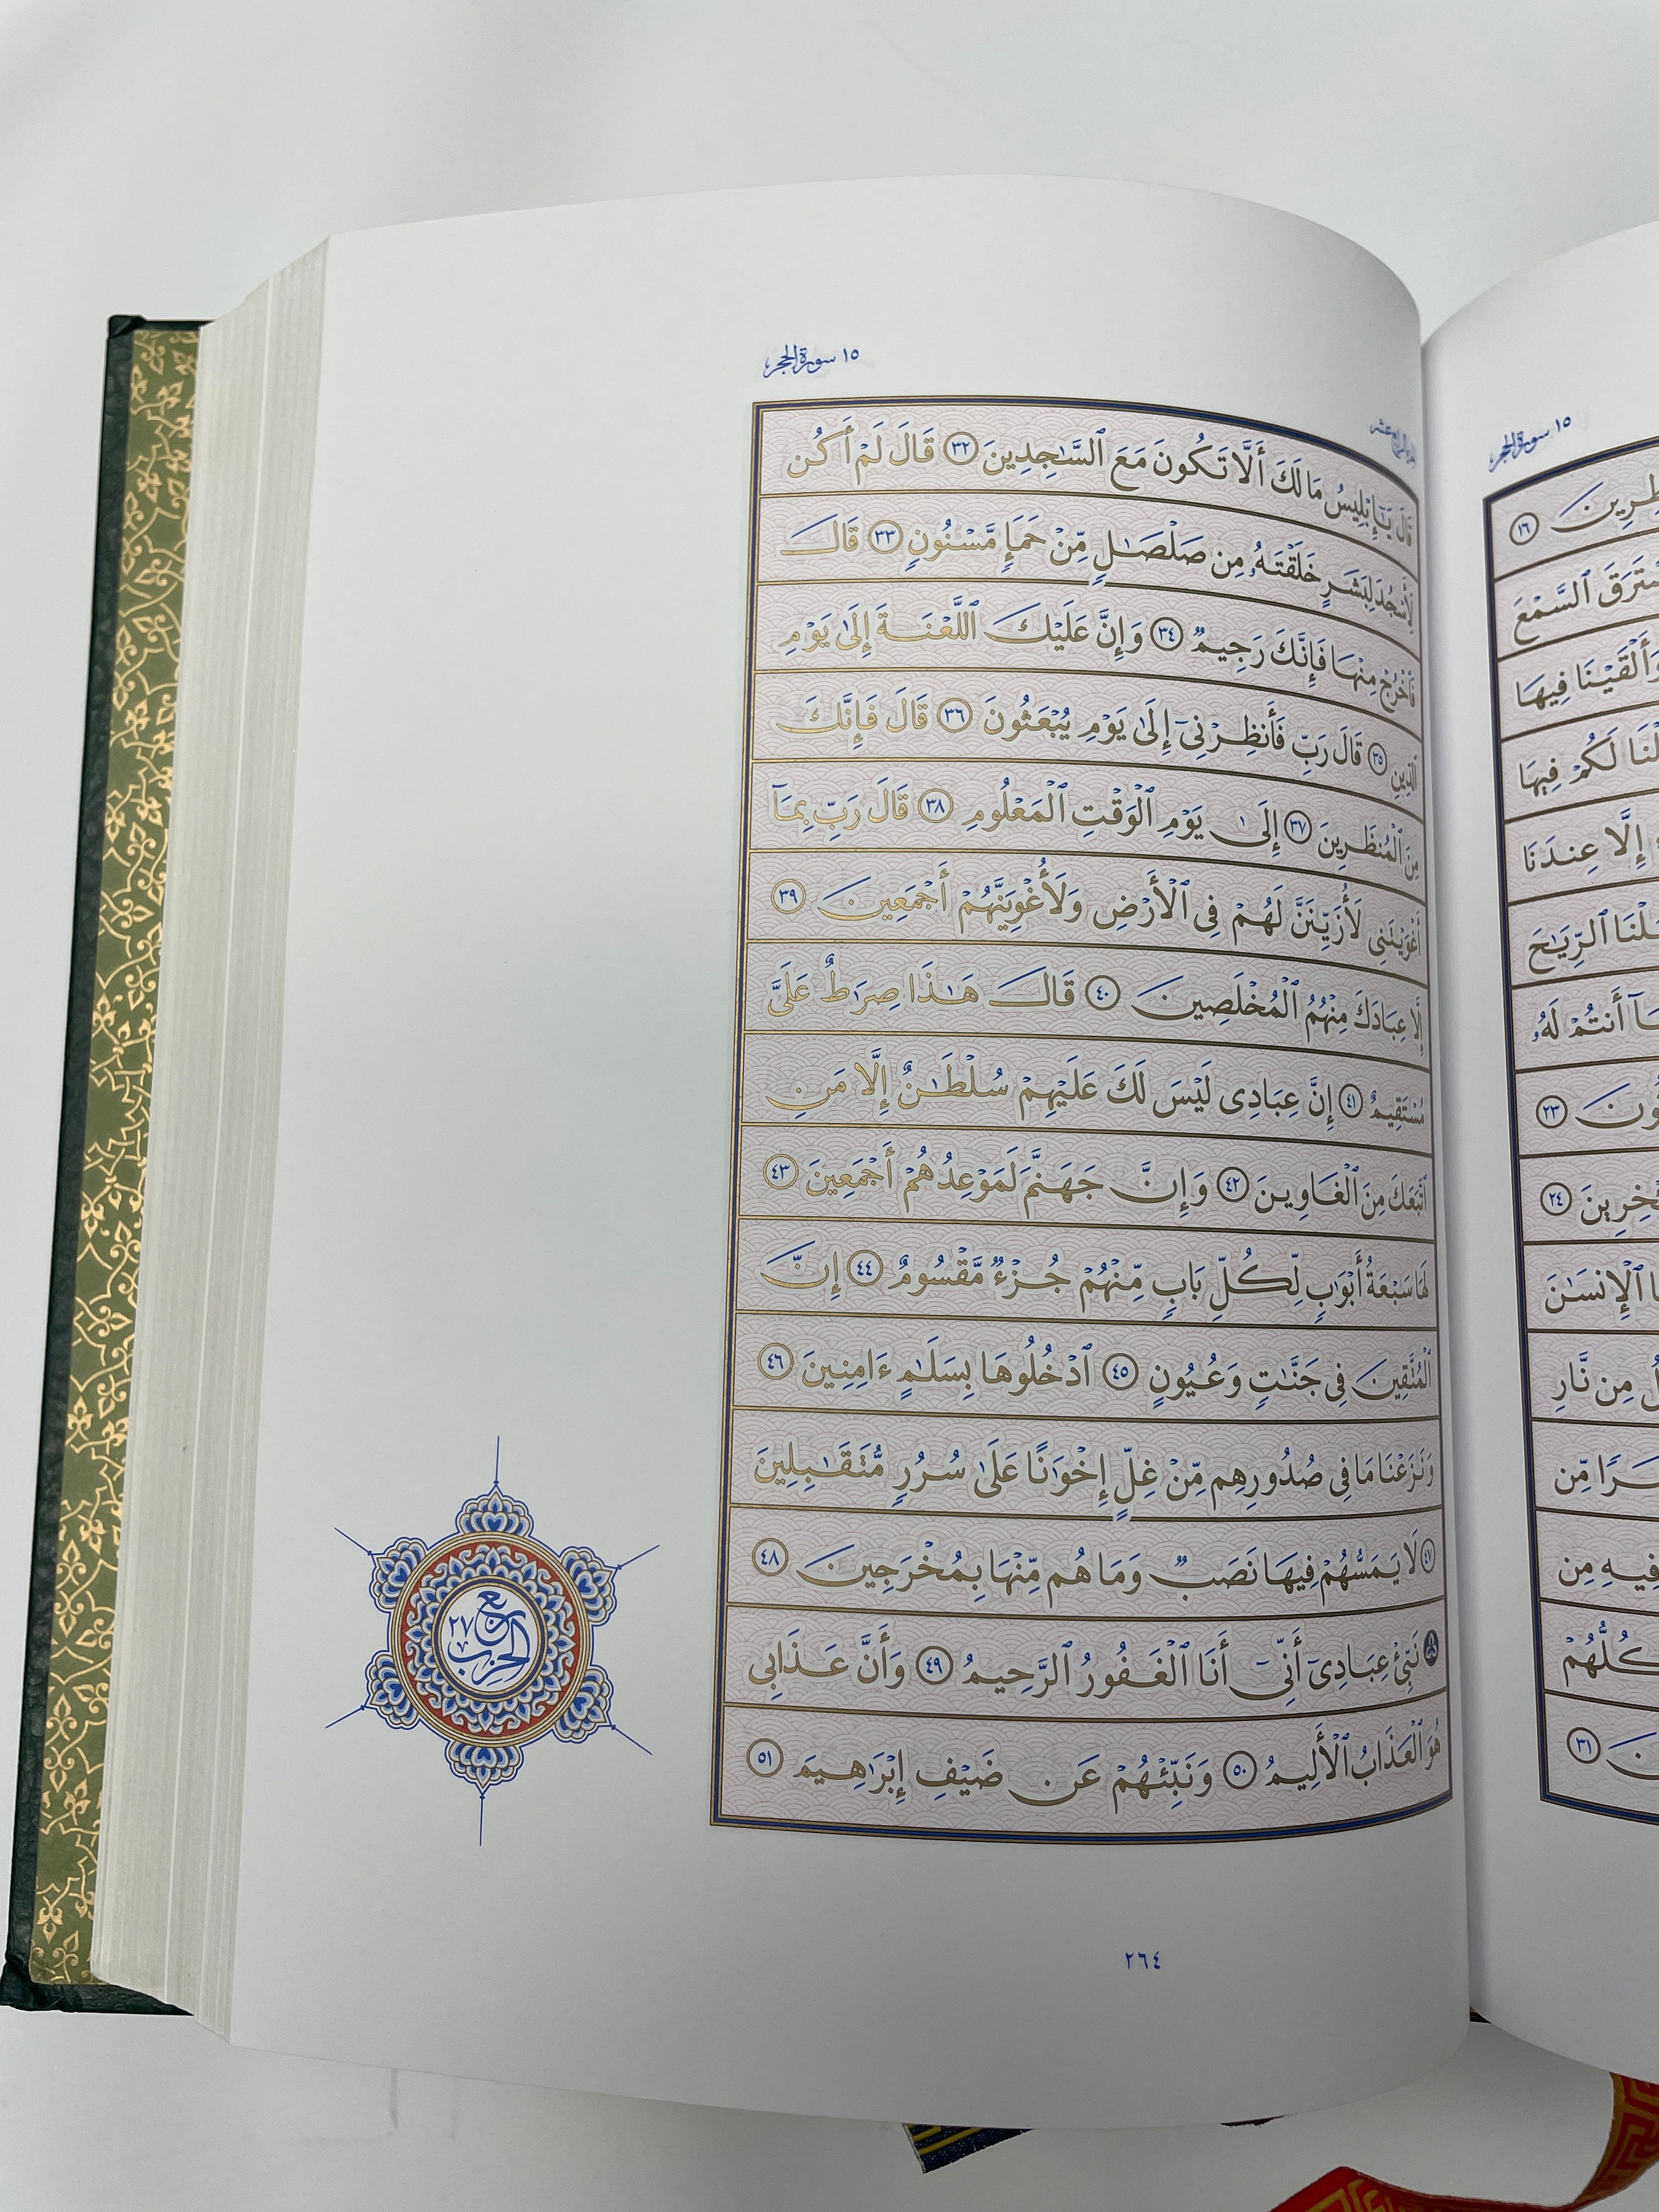 ١٥ سورة الحجر
قَالَ يَـٰٓإِبْلِيسُ مَا لَكَ أَلَّا تَكُونَ مَعَ ٱلسَّـٰجِدِينَ ٣٢ قَالَ لَمْ أَكُن
لِّأَسْجُدَ لِبَشَرٍ خَلَقْتَهُۥ مِن صَلْصَـٰلٍ مِّنْ حَمَإٍ مَّسْنُونٍ ٣٣ قَالَ
فَٱخْرُجْ مِنْهَا فَإِنَّكَ رَجِيمٌ ٣٤ وَإِنَّ عَلَيْكَ ٱللَّعْنَةَ إِلَىٰ يَوْمِ
ٱلدِّينِ ٣٥ قَالَ رَبِّ فَأَنظِرْنِىٓ إِلَىٰ يَوْمِ يُبْعَثُونَ ٣٦ قَالَ فَإِنَّكَ
مِنَ ٱلْمُنظَرِينَ ٣٧ إِلَىٰ يَوْمِ ٱلْوَقْتِ ٱلْمَعْلُومِ ٣٨ قَالَ رَبِّ بِمَآ
أَغْوَيْتَنِى لَأُزَيِّنَنَّ لَهُمْ فِى ٱلْأَرْضِ وَلَأُغْوِيَنَّهُمْ أَجْمَعِينَ ٣٩
إِلَّا عِبَادَكَ مِنْهُمُ ٱلْمُخْلَصِينَ ٤٠ قَالَ هَـٰذَا صِرَٰطٌ عَلَىَّ
مُسْتَقِيمٌ ٤١ إِنَّ عِبَادِى لَيْسَ لَكَ عَلَيْهِمْ سُلْطَـٰنٌ إِلَّا مَنِ
ٱتَّبَعَكَ مِنَ ٱلْغَاوِينَ ٤٢ وَإِنَّ جَهَنَّمَ لَمَوْعِدُهُمْ أَجْمَعِينَ ٤٣
لَهَا سَبْعَةُ أَبْوَٰبٍ لِّكُلِّ بَابٍ مِّنْهُمْ جُزْءٌ مَّقْسُومٌ ٤٤ إِنَّ
ٱلْمُتَّقِينَ فِى جَنَّـٰتٍ وَعُيُونٍ ٤٥ ٱدْخُلُوهَا بِسَلَـٰمٍ ءَامِنِينَ ٤٦
وَنَزَعْنَا مَا فِى صُدُورِهِم مِّنْ غِلٍّ إِخْوَٰنًا عَلَىٰ سُرُرٍ مُّتَقَـٰبِلِينَ
٤٧ لَا يَمَسُّهُمْ فِيهَا نَصَبٌ وَمَا هُم مِّنْهَا بِمُخْرَجِينَ ٤٨
۞ نَبِّئْ عِبَادِىٓ أَنِّىٓ أَنَا ٱلْغَفُورُ ٱلرَّحِيمُ ٤٩ وَأَنَّ عَذَابِى
هُوَ ٱلْعَذَابُ ٱلْأَلِيمُ ٥٠ وَنَبِّئْهُمْ عَن ضَيْفِ إِبْرَٰهِيمَ ٥١
ربع
الحزب ٢٧
٢٦٤
١٥ سورة الحجر
١٦
ٱلسَّمْعَ
وَأَلْقَيْنَا فِيهَا
لَكُمْ فِيهَا
إِلَّا عِندَنَا
ٱلرِّيَـٰحَ
أَنتُمْ لَهُۥ
٢٣
٢٤
ٱلْإِنسَـٰنَ
مِن نَّارِ
مِّن
فِيهِ مِن
كُلُّهُمْ
٣١